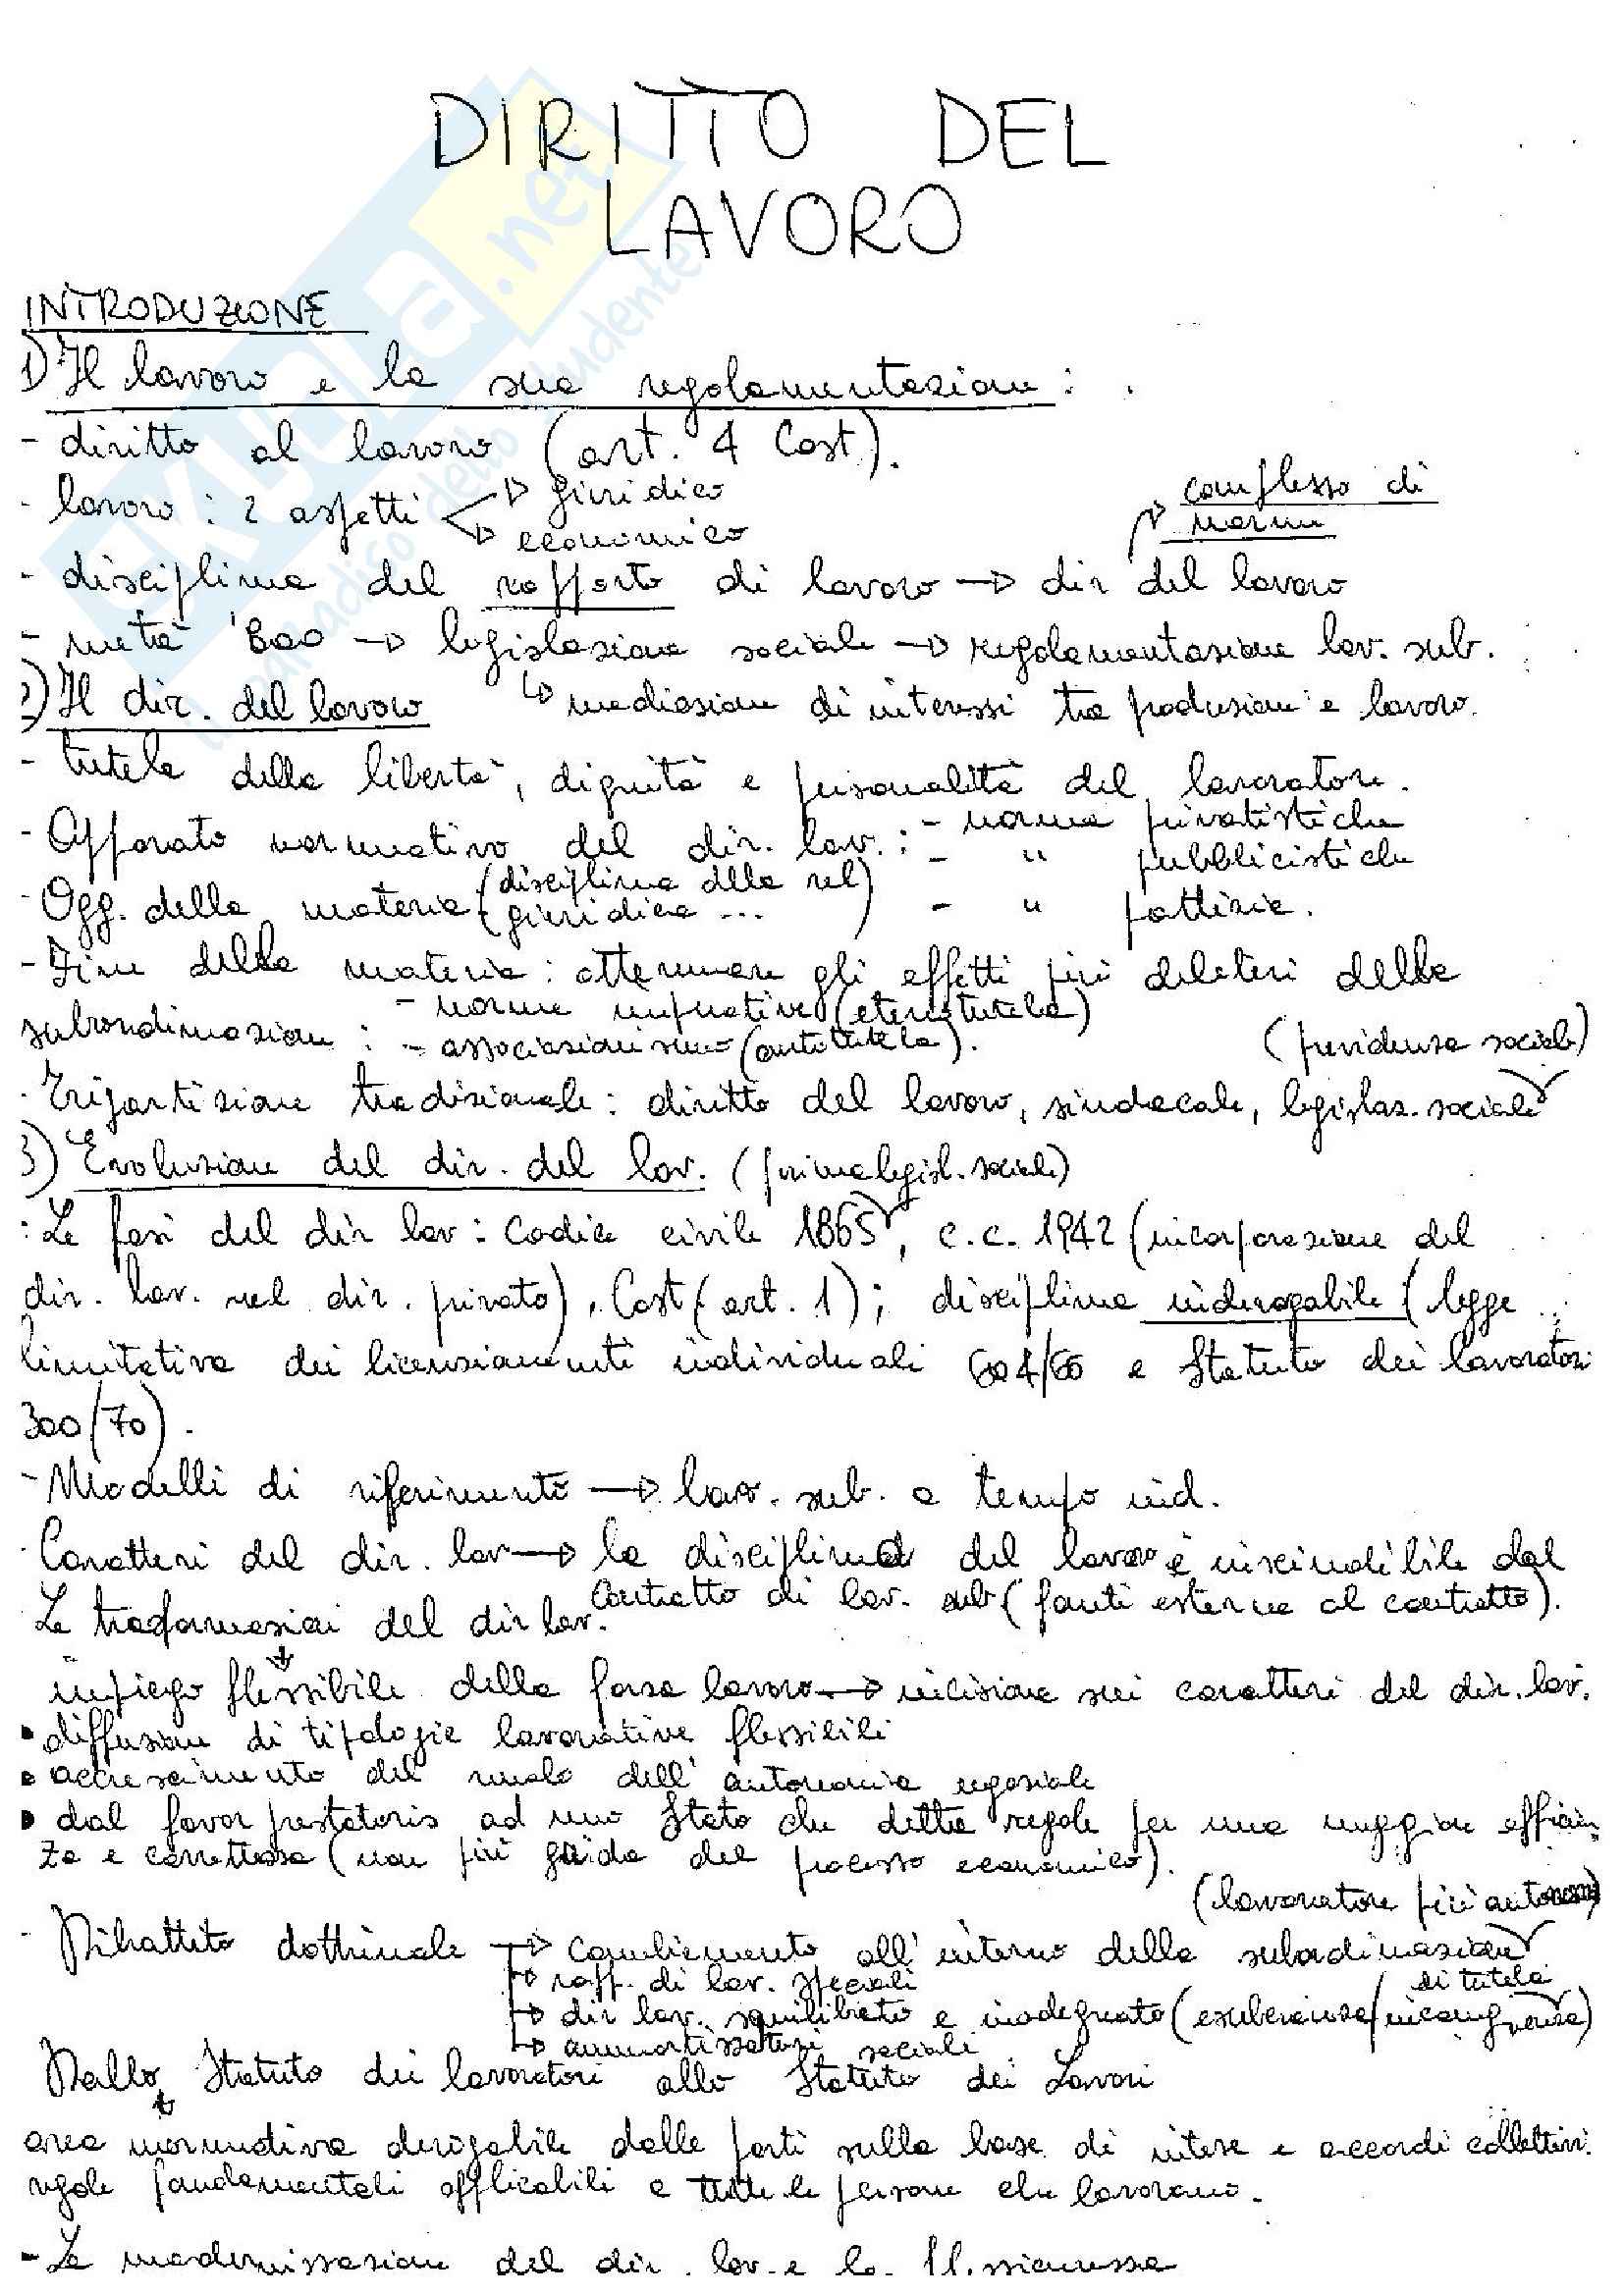 DIRITTO DEL
LAVORO
INTRODUZIONE
1) Il lavoro e la sua regolamentazione:
- diritto al lavoro (art. 4 Cost).
- lavoro: 2 aspetti → giuridico
→ economico
complesso di
norme
- disciplina del rapporto di lavoro → dir del lavoro
- metà '800 → legislazione sociale → regolamentazione lav. sub.
↳ mediazione di interessi tra produzione e lavoro.
2) Il dir. del lavoro
- tutela della libertà, dignità e personalità del lavoratore.
- Apparato normativo del dir. lav.: - norme privatistiche
- " pubblicistiche
- Ogg. della materia (disciplina della rel giuridica ...)
- " pattizie.
- Fine della materia: attenuare gli effetti più deleteri della
subordinazione: - norme imperative (eterotutela)
- associazionismo (autotutela).
(previdenza sociale)
- Tripartizione tradizionale: diritto del lavoro, sindacale, legislaz. sociale
3) Evoluzione del dir. del lav. (prima legisl. sociale)
: Le fasi del dir lav: Codice civile 1865, c.c. 1942 (incorporazione del
dir. lav. nel dir. privato), Cost (art. 1); disciplina inderogabile (legge
limitativa dei licenziamenti individuali 604/66 e Statuto dei lavoratori
300/70).
- Modelli di riferimento → lav. sub. a tempo ind.
- Caratteri del dir. lav → la disciplina del lavoro è inscindibile dal
contratto di lav. sub (fonti esterne al contratto).
Le trasformazioni del dir lav.
impiego flessibile della forza lavoro → incisione sui caratteri del dir. lav.
• diffusione di tipologie lavorative flessibili
• accrescimento del ruolo dell'autonomia negoziale
• dal favor prestatoris ad uno Stato che detta regole per una maggior efficien-
za e correttezza (non più guida del processo economico).
(lavoratore più autonomo)
- Dibattito dottrinale → cambiamento all'interno della subordinazione
→ rapp. di lav. speciali
di tutela
→ dir lav. squilibrato e inadeguato (esuberanza/incongruenza)
→ ammortizzatori sociali
Dallo Statuto dei lavoratori allo Statuto dei Lavori
area normativa derogabile dalle parti sulla base di intese e accordi collettivi.
regole fondamentali applicabili a tutte le persone che lavorano.
- La modernizzazione del dir. lav. e la fl.sicurezza
skuola.net
paradiso dello studente